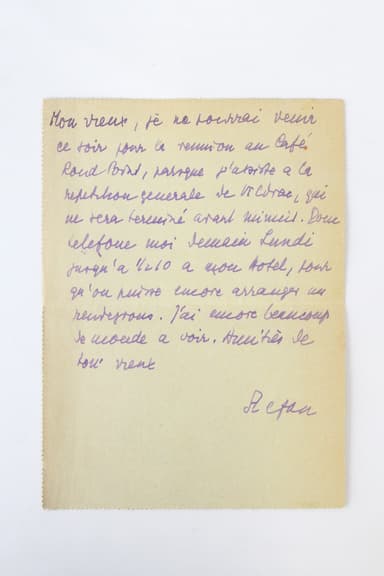 Mon vieux, je ne pourrai venir
ce soir pour la reunion au Café
Rond Point, parceque j'assiste a la
repetition generale de Vildrac, qui
ne sera terminé avant minuit. Donc
telefone moi demain Lundi
jusqu'a ½10 a mon Hotel, pour
qu'on puisse encore arranger un
rendezvous. J'ai encore beaucoup
de monde a voir. Amitiés de
ton vieux
Stefan